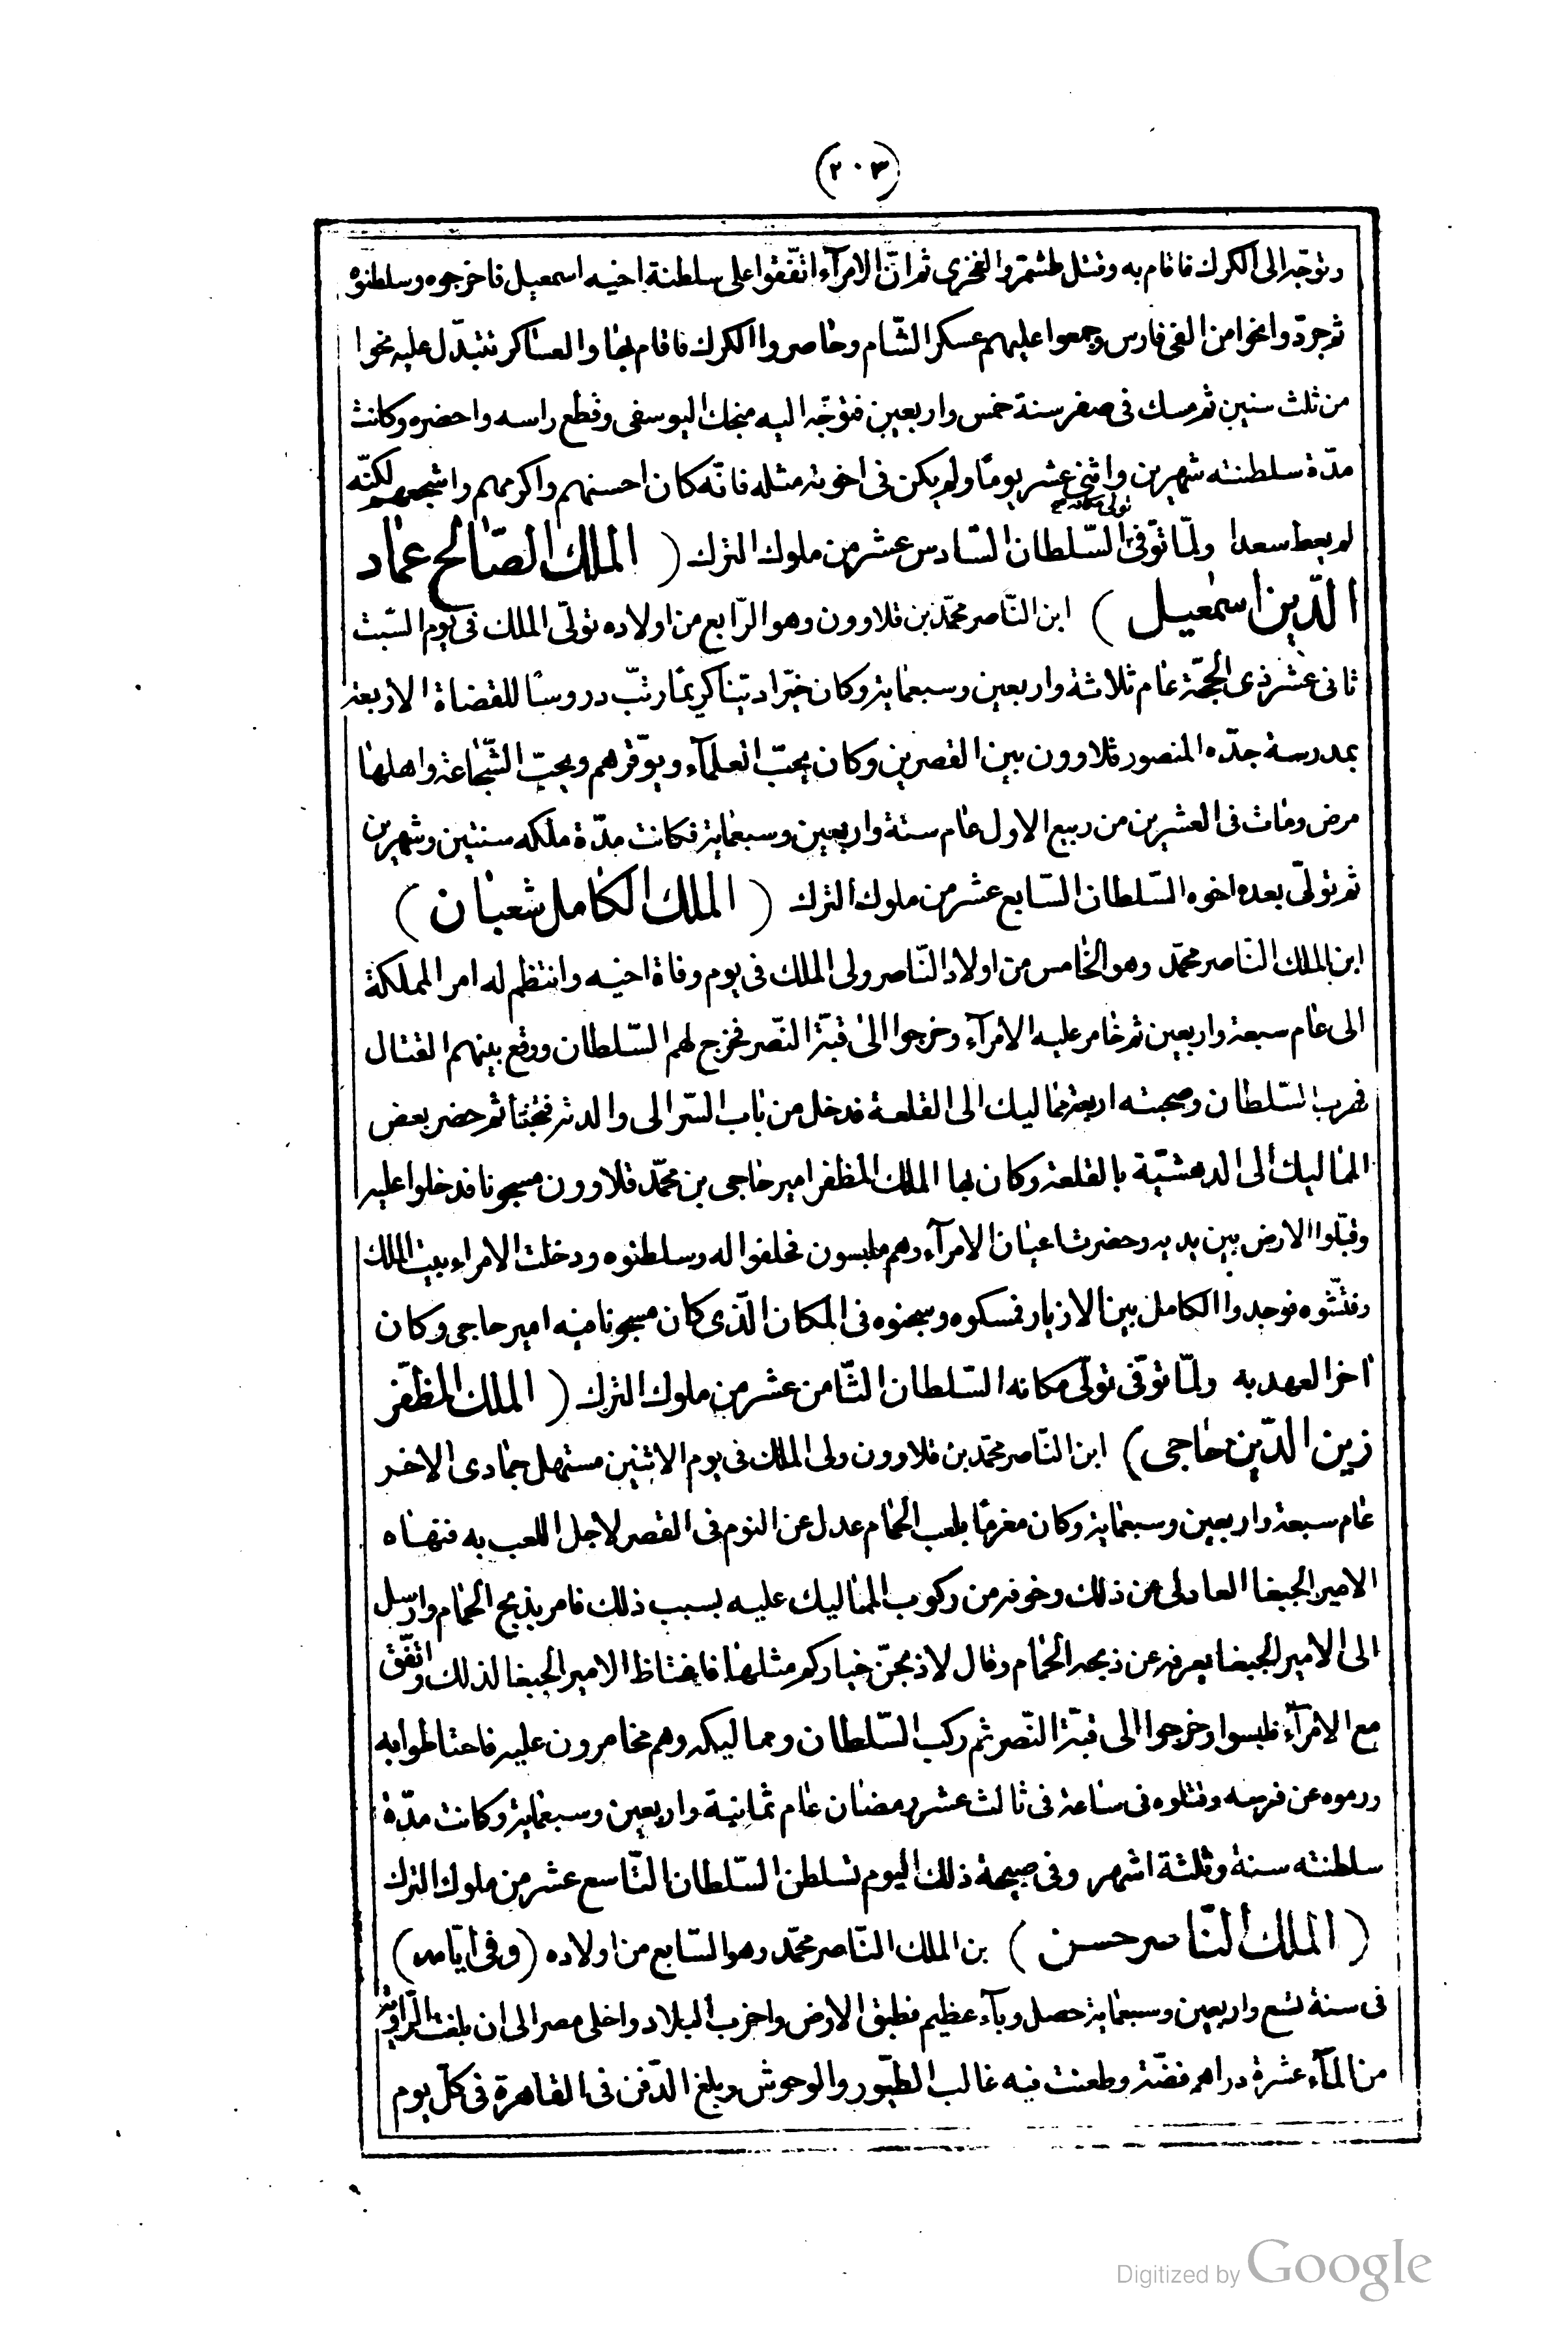 (٢٠٣)
وتوجّه الى الكرك فاقام به وقتل طشتمر والفخرى ثم انّ الامرآء اتّفقوا على سلطنة اخيه اسمعيل فاخرجوه وسلطنوه
ثم جردّوا نحوا من الفى فارس وجمعوا عليهم عسكر الشّام وحاصروا الكرك فاقام بها والعساكر تتبدّل عليه نحوا
من ثلث سنين ثم مسك فى صفر سنة خمس واربعين فتوجّه اليه منجك اليوسفى وقطع راسه واحضره وكانت
مدّة سلطنته شهرين واثنى عشر يوما ولم يكن فى اخوته مثله فانّه كان احسنهم واكرمهم واشجعهم لكنّه
لم يعط سعدا ولمّا توفّى تولى مكانه السّلطان السّادس عشر من ملوك الترك ( الملك الصّالح عماد
الدّين اسمعيل ) ابن النّاصر محمّد بن قلاوون وهو الرّابع من اولاده تولّى الملك فى يوم السّبت
ثانى عشر ذى الحجّة عام ثلاثة واربعين وسبعماية وكان خيّرا ديّنا كريما رتّب دروسا للقضاة الاربعة
بمدرسة جدّه المنصور قلاوون بين القصرين وكان يحبّ العلمآء ويوقّرهم ويحبّ الشّجاعة واهلها
مرض ومات فى العشرين من ربيع الاول عام ستة واربعين وسبعماية فكانت مدّة ملكه سنتين وشهرين
ثم تولّى بعده اخوه السّلطان السّابع عشر من ملوك الترك ( الملك الكامل شعبان )
ابن الملك النّاصر محمّد وهو الخامس من اولاد النّاصر ولى الملك فى يوم وفاة اخيه وانتظم له امر المملكة
الى عام سبعة واربعين ثم خامر عليه الامرآء وخرجوا الى قبّة النّصر فخرج لهم السّلطان ووقع بينهم القتال
فهرب السّلطان وصحبته اربعة مماليك الى القلعة فدخل من باب السّر الى والدته فتخبّأ ثم حضر بعض
المماليك الى الدهشيّة بالقلعة وكان بها الملك المظفر امير حاجى بن محمّد قلاوون مسجونا فدخلوا عليه
وقبّلوا الارض بين يديه وحضرت اعيان الامرآء وهم ملبسون فحلفوا له وسلطنوه ودخلت الامراء بيت الملك
وفتّشوه فوجدوا الكامل بين الازيار فمسكوه وسجنوه فى المكان الّذى كان مسجونا فيه امير حاجى وكان
اخر العهد به ولمّا توفّى تولّى مكانه السّلطان الثّامن عشر من ملوك الترك ( الملك المظفّر
زين الدّين حاجى ) ابن النّاصر محمّد بن قلاوون ولى الملك فى يوم الاثنين مستهل جمادى الاخر
عام سبعة واربعين وسبعماية وكان مغرما بلعب الحمام عدل عن النوم فى القصر لاجل اللعب به فنهاه
الامير الجبغا العادلى عن ذلك وخوفه من ركوب المماليك عليه بسبب ذلك فامر بذبح الحمام وارسل
الى الامير الجبغا يعرفه عن ذبحه الحمام وقال لاذبحنّ خياركم مثلها فاغتاظ الامير الجبغا لذلك واتّفق
مع الامرآء فلبسوا وخرجوا الى قبّة النّصر ثم ركب السّلطان ومماليكه وهم مخامرون عليه فاحتاطوا به
ورموه عن فرسه وقتلوه فى ساعة فى ثالث عشر رمضان عام ثمانية واربعين وسبعماية وكانت مدّة
سلطنته سنة وثلثة اشهر وفى صبيحة ذلك اليوم تسلطن السّلطان التّاسع عشر من ملوك الترك
( الملك النّاصر حسن ) بن الملك النّاصر محمّد وهو السّابع من اولاده (وفى ايّامه)
فى سنة تسع واربعين وسبعماية حصل وبآء عظيم فطبق الارض واخرب البلاد واخلى مصر الى ان بلغت الرّاوية
من المآء عشرة دراهم فضّة وطعنت فيه غالب الطّيور والوحوش وبلغ الدّفن فى القاهرة فى كلّ يوم
Digitized by Google